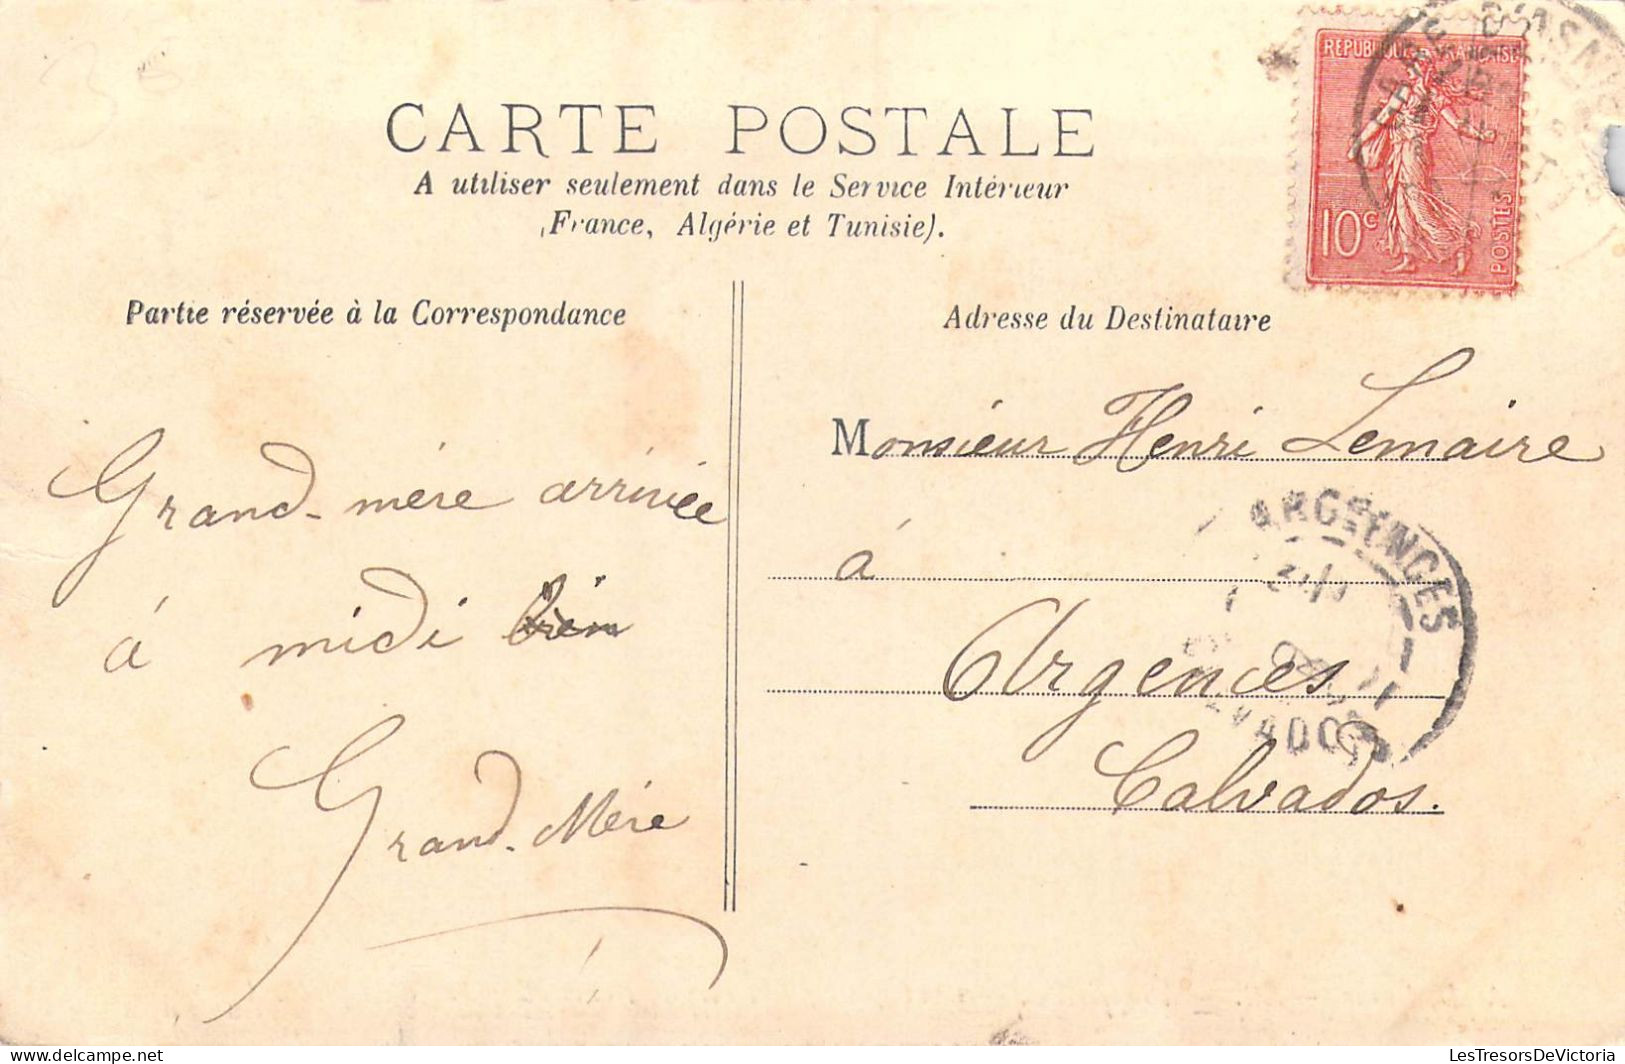 CARTE POSTALE
A utiliser seulement dans le Service Intérieur
(France, Algérie et Tunisie).
RÉPUBLIQUE FRANÇAISE
10c
POSTES
Partie réservée à la Correspondance
Grand-mère arrivée
à midi bien
Grand-Mère
Adresse du Destinataire
Monsieur Henri Lemaire
à
Argences
Calvados.
ARGENCES
CALVADOS
LesTresorsDeVictoria